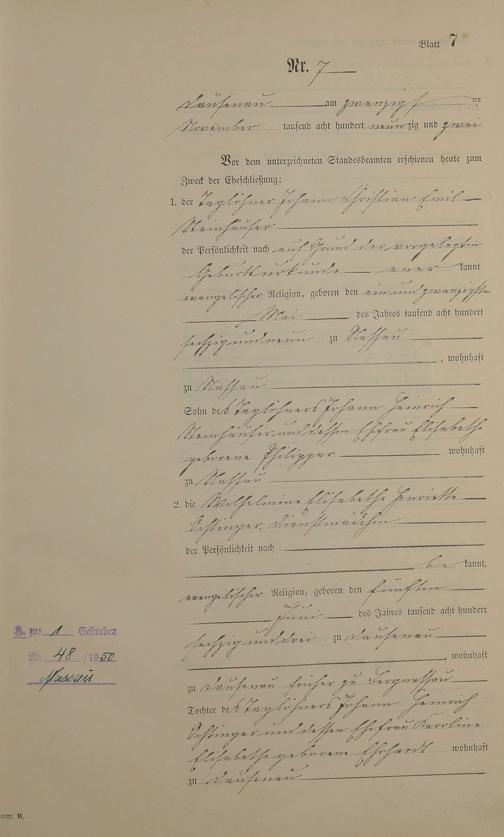 Blatt 7
Nr. 7
Dausenau am zwanzigsten
November tausend acht hundert neunzig und zwei
Vor dem unterzeichneten Standesbeamten erschienen heute zum
Zweck der Eheschließung:
1. der Taglöhner Johann Christian Emil
Steinhäuser
der Persönlichkeit nach auf Grund der vorgelegten
Geburtsurkunde aner kannt
evangelischer Religion, geboren den ein und zwanzigsten
Mai des Jahres tausend acht hundert
sechzig und neun zu Nassau
, wohnhaft
zu Nassau
Sohn des Taglöhners Johann Heinrich
Steinhäuser und dessen Ehefrau Elisabethe
geborene Philipps wohnhaft
zu Nassau
2. die Wilhelmine Elisabethe Henriette
Dienstmädchen
der Persönlichkeit nach
be kannt,
evangelischer Religion, geboren den fünften
Juni des Jahres tausend acht hundert
sechzig und drei zu Dausenau
, wohnhaft
zu Dausenau früher zu Bergnassau
Tochter des Taglöhners Johann Heinrich
und dessen Ehefrau Karoline
Elisabethe geborene Ehrhardt wohnhaft
zu Dausenau
H. zu: 1 Gestorben
Nr. 48 / 1950
Nassau